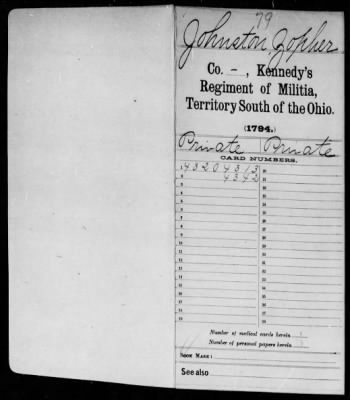 79
Johnston, Zopher
Co. - , Kennedy's
Regiment of Militia,
Territory South of the Ohio.
(1794.)
Private Private
CARD NUMBERS.
1 43204313 20
2 4342 21
3 22
4 23
5 24
6 25
7 26
8 27
9 28
10 29
11 30
12 31
13 32
14 33
15 34
16 35
17 36
18 37
19 38
Number of medical cards herein
Number of personal papers herein
BOOK MARK:
See also